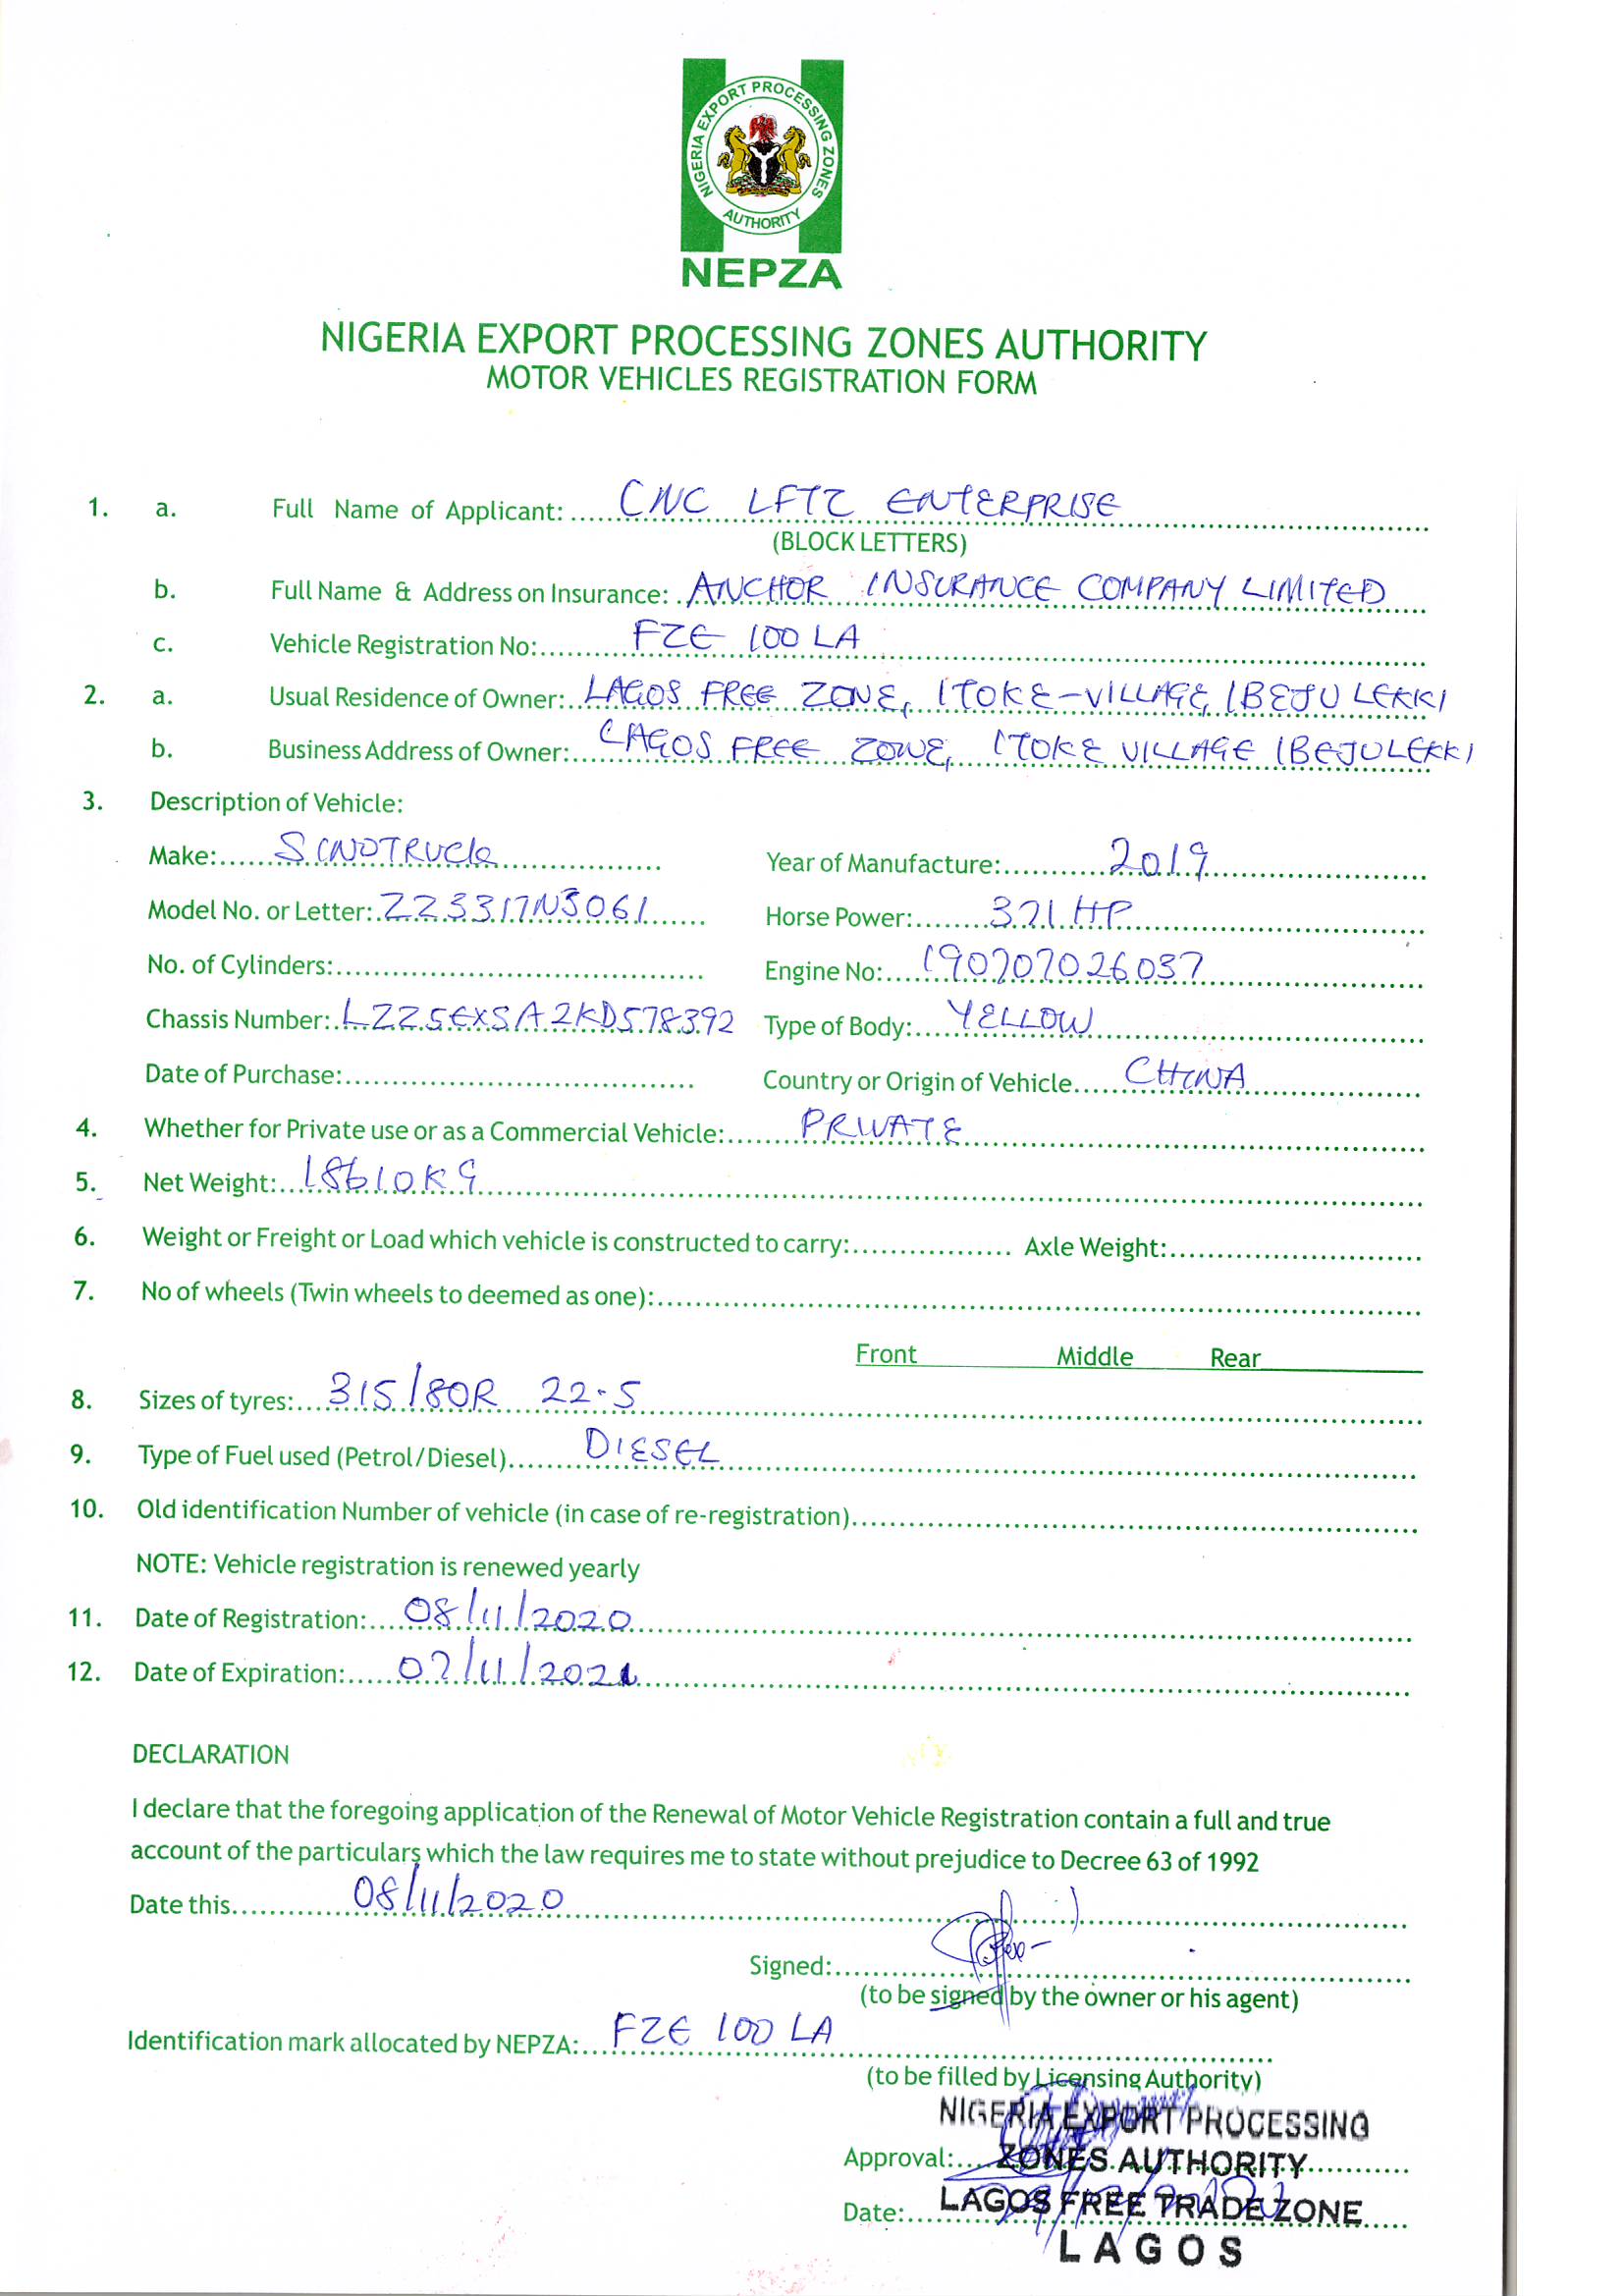 NIGERIA EXPORT PROCESSING ZONES
AUTHORITY
NEPZA
NIGERIA EXPORT PROCESSING ZONES AUTHORITY
MOTOR VEHICLES REGISTRATION FORM
1. a. Full Name of Applicant: CNC LFTZ ENTERPRISE
(BLOCK LETTERS)
b. Full Name & Address on Insurance: ANCHOR INSURANCE COMPANY LIMITED
c. Vehicle Registration No: FZE 100 LA
2. a. Usual Residence of Owner: LAGOS FREE ZONE, ITOKE-VILLAGE, IBEJU LEKKI
b. Business Address of Owner: LAGOS FREE ZONE, ITOKE VILLAGE IBEJU LEKKI
3. Description of Vehicle:
Make: SINOTRUCK Year of Manufacture: 2019
Model No. or Letter: ZZ3317N3061 Horse Power: 371 HP
No. of Cylinders: Engine No: 190707026037
Chassis Number: LZZ5EXSA2KD578392 Type of Body: YELLOW
Date of Purchase: Country or Origin of Vehicle CHINA
4. Whether for Private use or as a Commercial Vehicle: PRIVATE
5. Net Weight: 18610Kg
6. Weight or Freight or Load which vehicle is constructed to carry: Axle Weight:
7. No of wheels (Twin wheels to deemed as one):
Front Middle Rear
8. Sizes of tyres: 315/80R 22.5
9. Type of Fuel used (Petrol/Diesel) DIESEL
10. Old identification Number of vehicle (in case of re-registration)
NOTE: Vehicle registration is renewed yearly
11. Date of Registration: 08/11/2020
12. Date of Expiration: 07/11/2021
DECLARATION
I declare that the foregoing application of the Renewal of Motor Vehicle Registration contain a full and true
account of the particulars which the law requires me to state without prejudice to Decree 63 of 1992
Date this 08/11/2020
Signed:
(to be signed by the owner or his agent)
Identification mark allocated by NEPZA: FZE 100 LA
(to be filled by Licensing Authority)
NIGERIA EXPORT PROCESSING
Approval: ZONES AUTHORITY
Date: LAGOS FREE TRADE ZONE
LAGOS